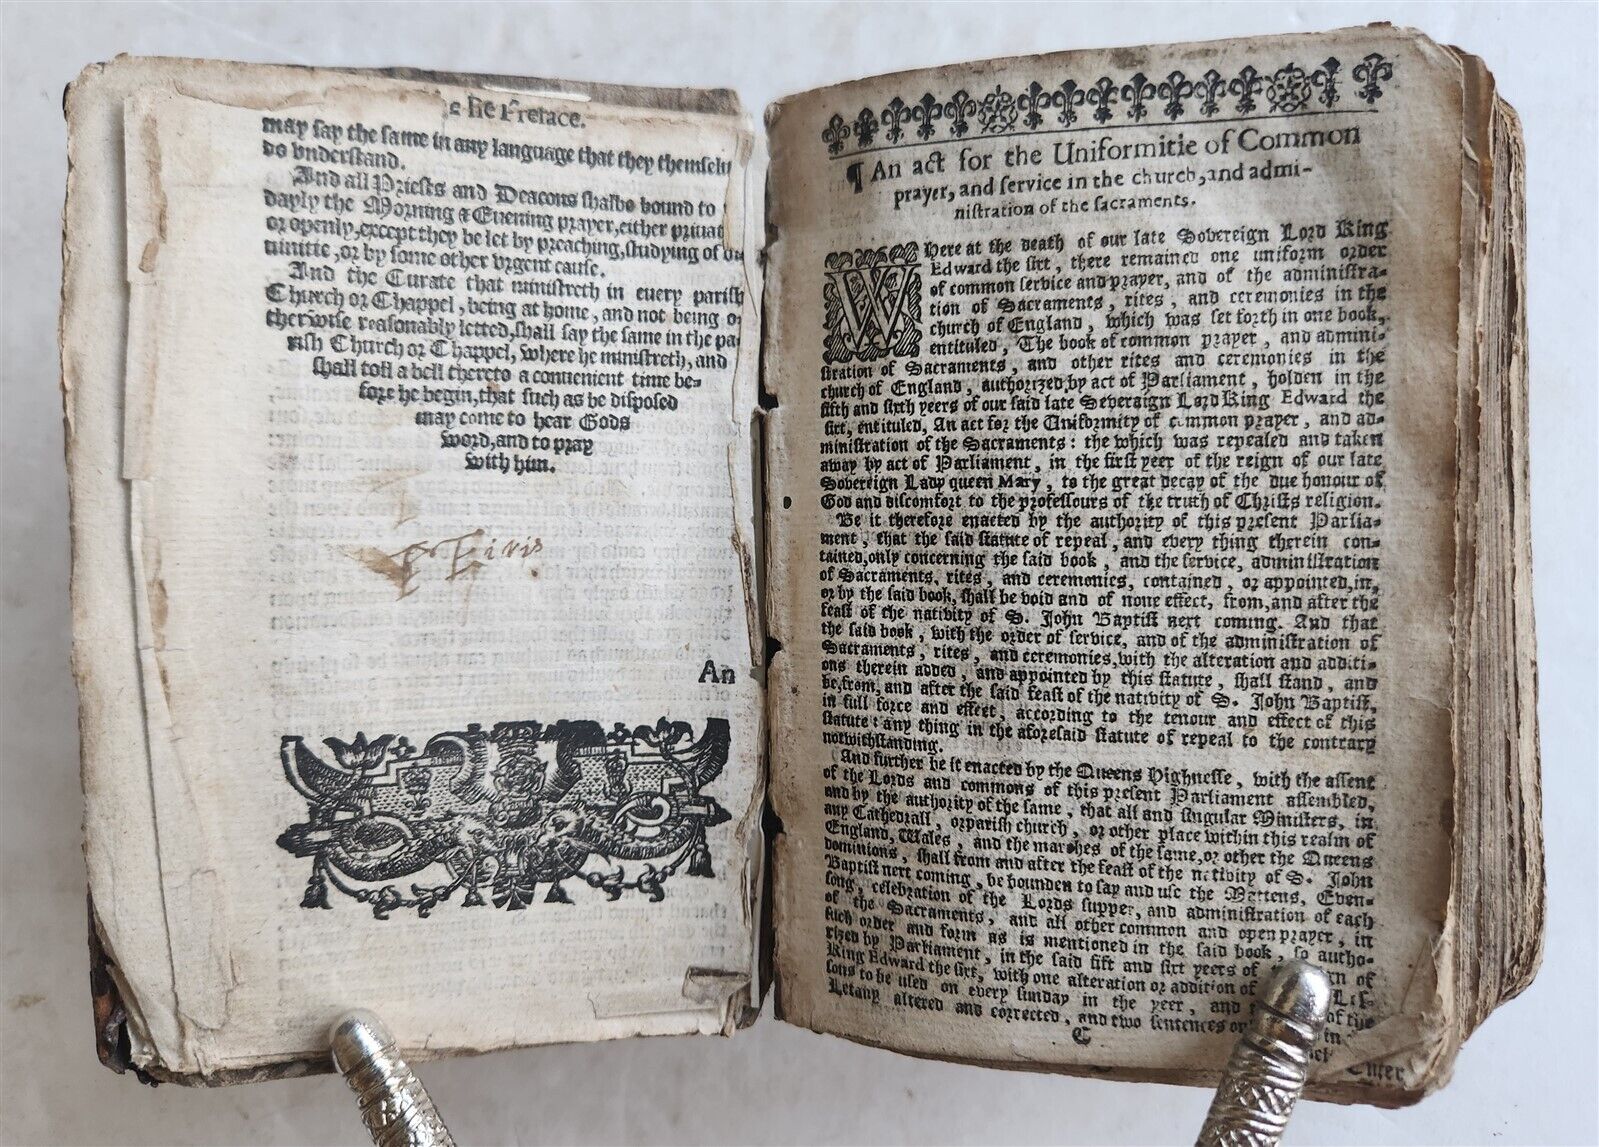 he Preface.
may say the same in any language that they themselu
do vnderstand.
And all Priests and Deacons shalbe bound to
dayly the Morning & Euening prayer, either priuat
or openly, except they be let by preaching, studying of di
uinitie, or by some other vrgent cause.
And the Curate that ministreth in euery parish
Church or Chappel, being at home, and not being o
therwise reasonably letted, shall say the same in the pa-
rish Church or Chappel, where he ministreth, and
shall toll a bell thereto a conuenient time be-
fore he begin, that such as be disposed
may come to hear Gods
word, and to pray
with him.
An
¶ An act for the Uniformitie of Common
prayer, and service in the church, and admi-
nistration of the sacraments.
WHere at the death of our late Sovereign Lord King
Edward the sixt, there remained one uniform order
of common service and prayer, and of the administra-
tion of Sacraments, rites, and ceremonies in the
church of England, which was set forth in one book,
entituled, The book of common prayer, and admini-
stration of Sacraments, and other rites and ceremonies in the
church of England, authorized by act of Parliament, holden in the
fifth and sixth yeers of our said late Severaign Lord King Edward the
sixt, entituled, An act for the Uniformity of common prayer, and ad-
ministration of the Sacraments: the which was repealed and taken
away by act of Parliament, in the first yeer of the reign of our late
Sovereign Lady queen Mary, to the great decay of the due honour of
God and discomfort to the professours of the truth of Christs religion.
Be it therefore enacted by the authority of this present Parlia-
ment, that the said statute of repeal, and every thing therein con-
tained, only concerning the said book, and the service, administration
of Sacraments, rites, and ceremonies, contained, or appointed, in,
or by the said book, shall be void and of none effect, from, and after the
feast of the nativity of S. John Baptist next coming. And that
the said book, with the order of service, and of the administration of
Sacraments, rites, and ceremonies, with the alteration and additi-
ons therein added, and appointed by this statute, shall stand, and
be, from, and after the said feast of the nativity of S. John Baptist,
in full force and effect, according to the tenour and effect of this
statute: any thing in the aforesaid statute of repeal to the contrary
notwithstanding.
And further be it enacted by the Queens Highnesse, with the assent
of the Lords and commons of this present Parliament assembled,
and by the authority of the same, that all and singular Ministers, in
any Cathedrall, or parish church, or other place within this realm of
England, Wales, and the marches of the same, or other the Queens
dominions, shall from and after the feast of the nativity of S. John
Baptist next coming, be bounden to say and use the Mattens, Even-
song, celebration of the Lords supper, and administration of each
of the Sacraments, and all other common and open prayer, in
such order and form as is mentioned in the said book, so autho-
rized by Parliament, in the said fift and sixt yeers of gn of
King Edward the sixt, with one alteration or addition of Les-
sons to be used on every sunday in the yeer, and of the
Letany altered and corrected, and two sentences on in
C